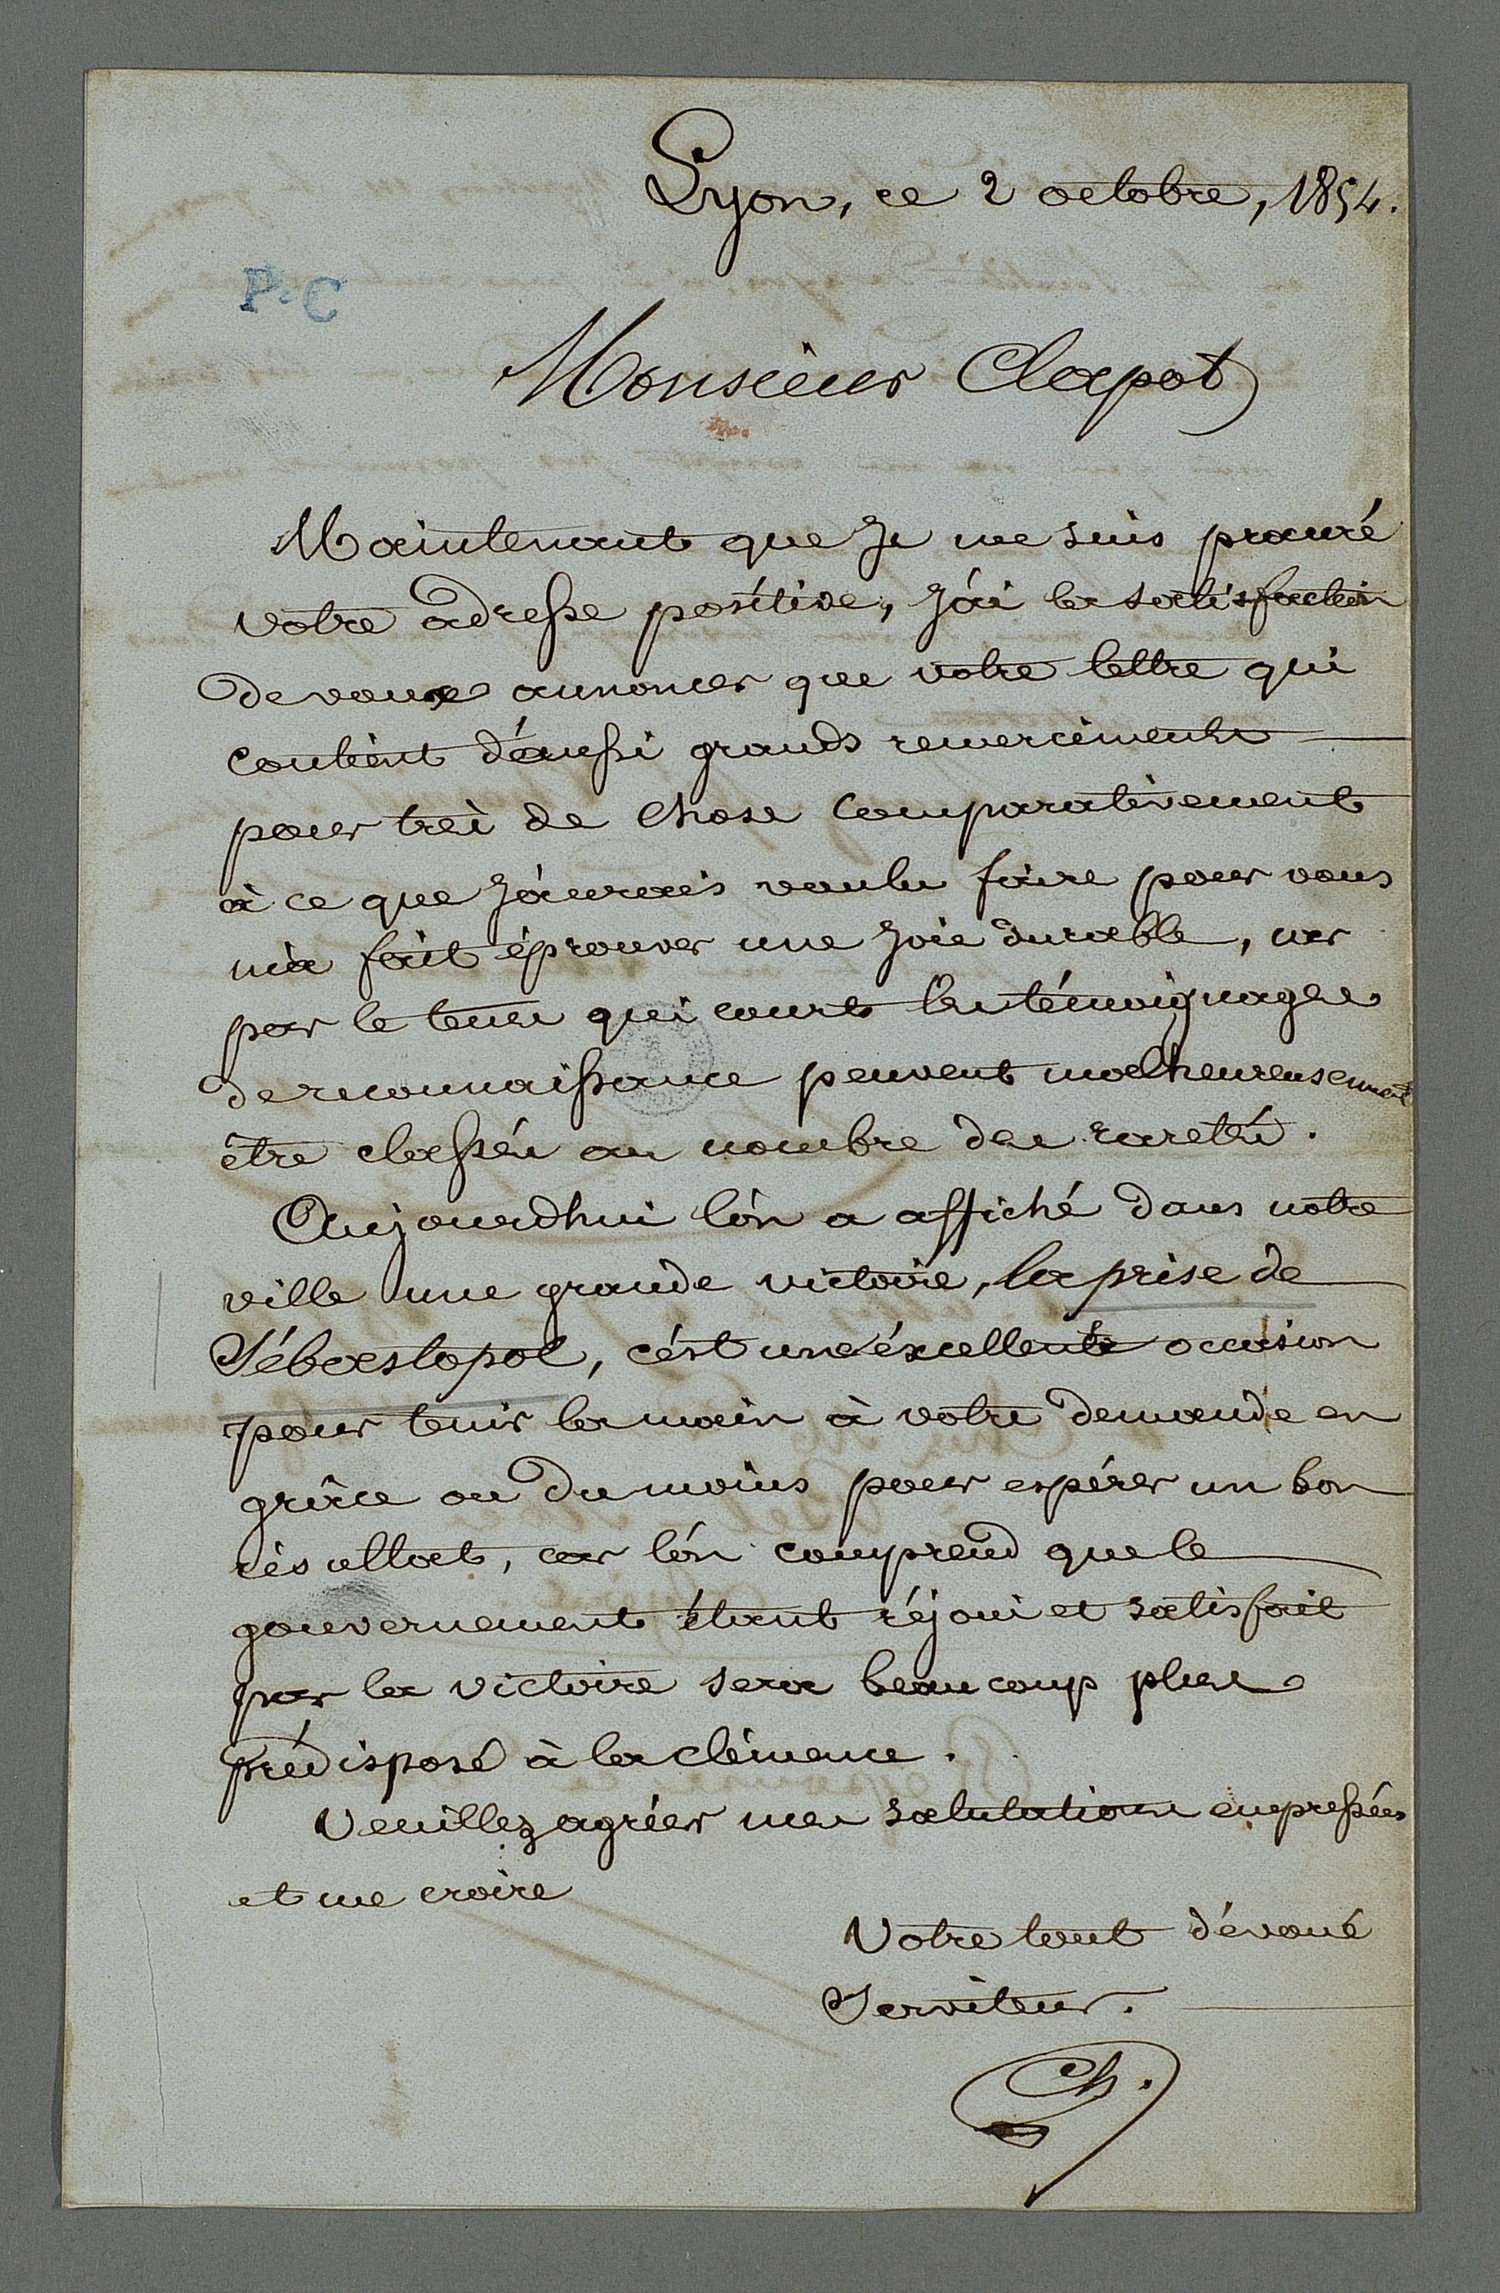 Lyon, ce 2 octobre, 1854.
P.C
Monsieur Clapot
Maintenant que Je me suis procuré
votre adresse positive, J'ai la satisfaction
de vous annoncer que votre lettre qui
contient d'aussi grands remerciements
pour très de chose comparativement
à ce que J'aurais voulu faire pour vous
m'a fait éprouver une Joie durable, car
par le tems qui court les témoignages
de reconnaissance peuvent malheureusement
être classés au nombre des raretés.
Aujourdhui l'on a affiché dans notre
ville une grande victoire, la prise de
Sébastopol, c'est une éxcellente occasion
pour tenir la main à votre demande en
grâce ou du moins pour espérer un bon
résultat, car l'on comprend que le
gouvernement étant réjoui et satisfait
par la victoire sera beaucoup plus
prédisposé à la clémence.
Veuillez agréer mes salutations empressées
et me croire
Votre tout dévoué
Serviteur.
Ch.